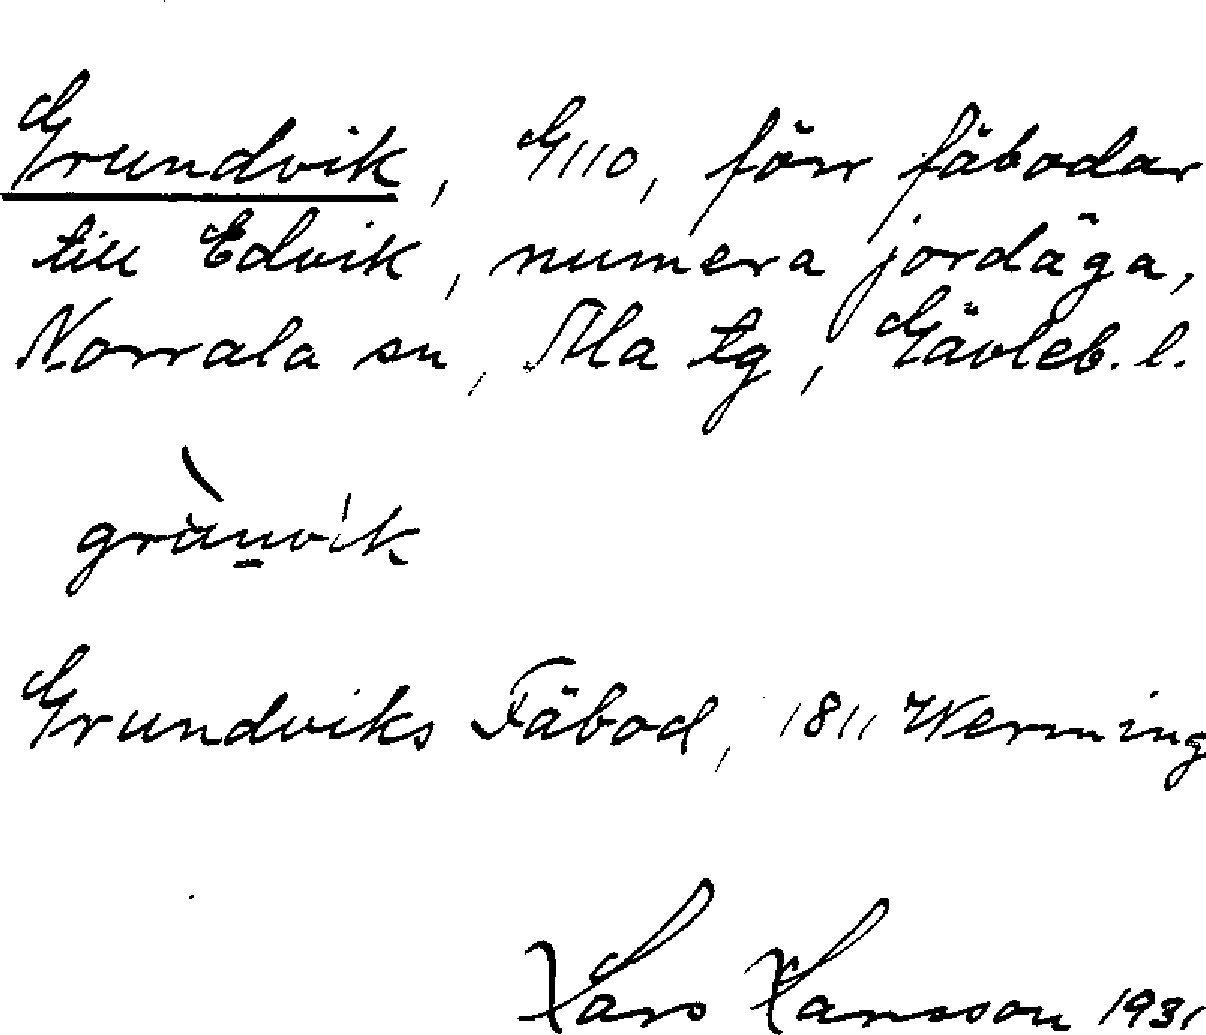 Grundvik, G110, förr fäbodar
till Edvik, numera jordäga,
Norrala sn, Ala tg, Gävleb. l.
grùnvik
Grundviks Fäbod, 1811 Werming
Hans Hansson 1931